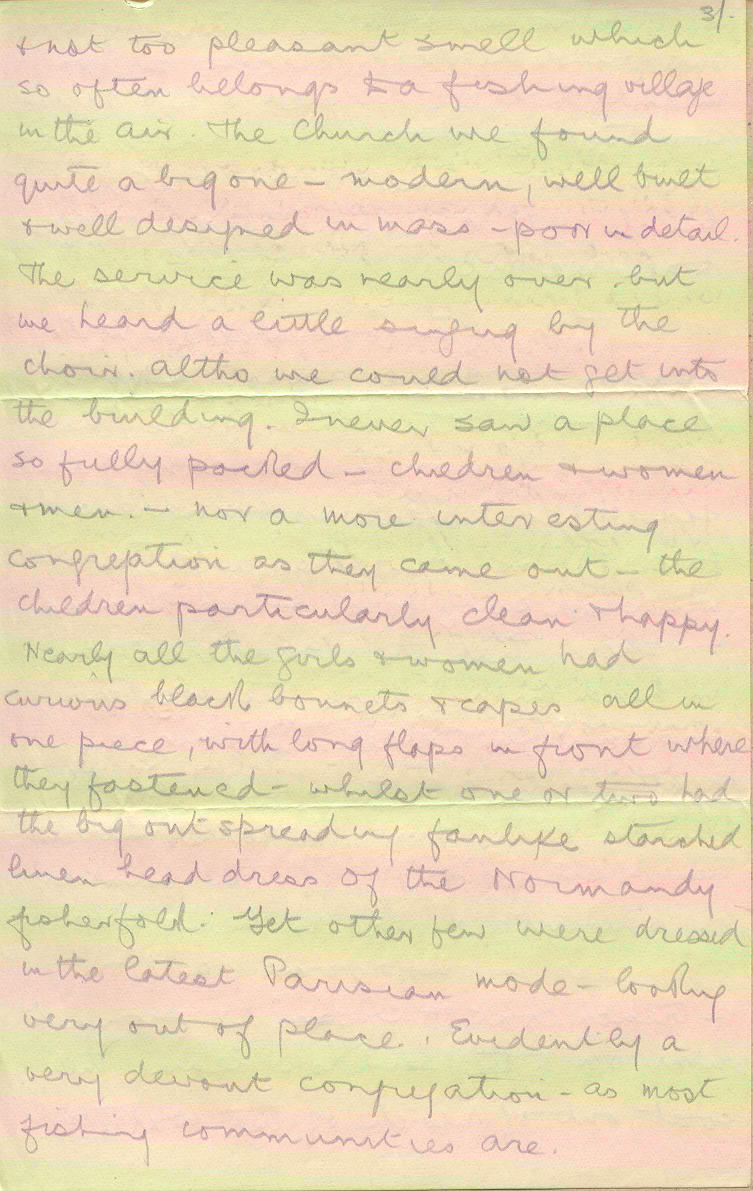 3/-
& not too pleasant smell which
so often belongs to a fishing village
in the air. The Church we found
quite a big one – modern, well built
& well designed in mass – poor in detail.
The service was nearly over but
we heard a little singing by the
choir. altho we could not get into
the building. I never saw a place
so fully packed – children & women
& men. – nor a more interesting
congregtion as they came out – the
children particularly clean & happy.
Nearly all the girls & women had
curious black bonnets & capes all in
one piece, with long flaps in front where
they fastened – whilst one or two had
the big out spreading fanlike starched
linen head dress of the Normandy
fisherfolk. Yet other few were dressed
in the latest Parisian mode – looking
very out of place. Evidently a
very devout congregation – as most
fishing communities are.